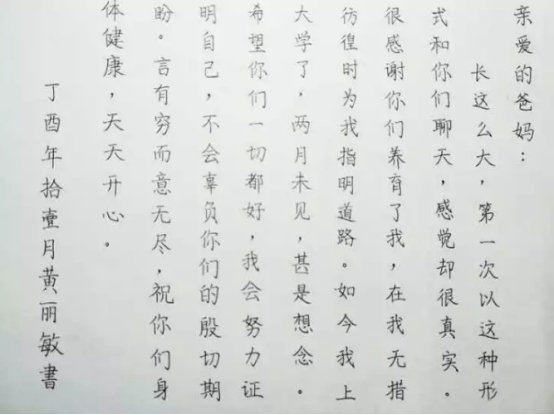 亲爱的爸妈：
长这么大，第一次以这种形
式和你们聊天，感觉却很真实。
很感谢你们养育了我，在我无措
彷徨时为我指明道路。如今我上
大学了，两月未见，甚是想念。
希望你们一切都好，我会努力证
明自己，不会辜负你们的殷切期
盼。言有穷而意无尽，祝你们身
体健康，天天开心。
丁酉年拾壹月黄丽敏書